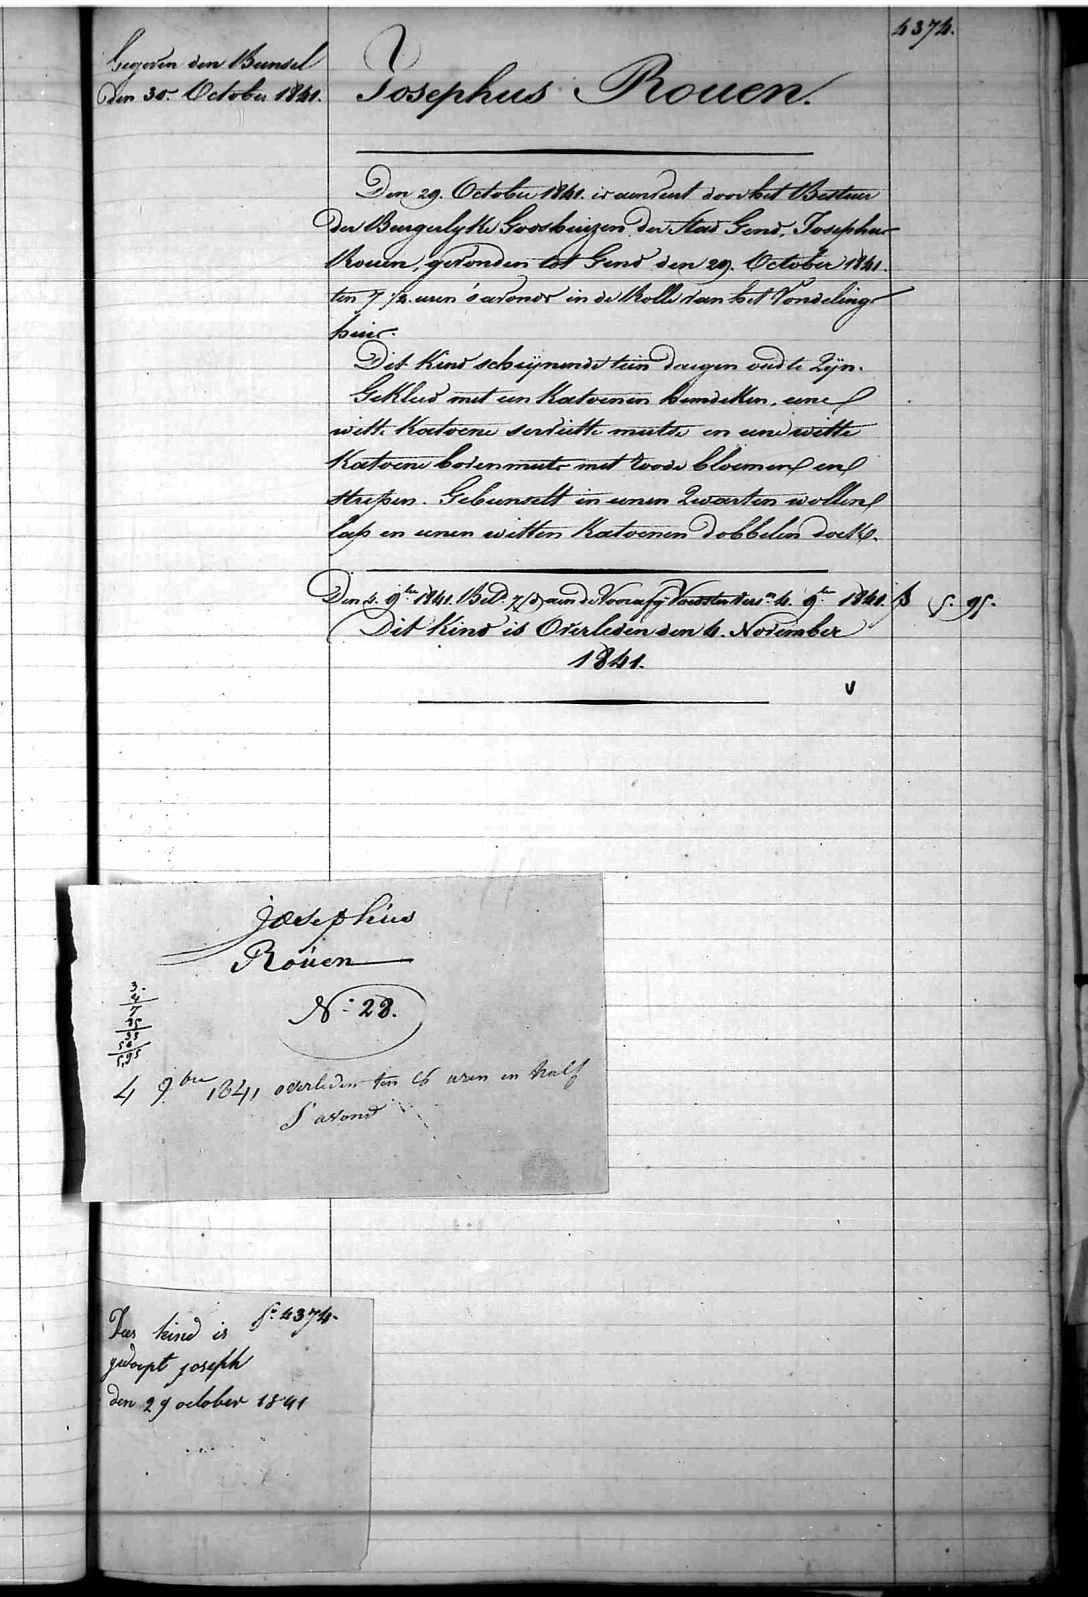 4374.
Gegeven den Bunsel
den 30. October 1841.
Josephus Rouen.
Den 29. October 1841. is aenveert door het Bestuer
der Burgerlyke Godshuizen der Stad Gend, Josephus
Rouen, gevonden tot Gend den 29. October 1841.
ten 7 1/2 uren 's avonds in de Rolle van het Vondeling-
huis.
Dit Kind schijnende tien daegen oud te Zijn.
Gekleed met een Katoenen hemdeken, eene
witte Katoene serviette mutse en eene witte
Katoene bovenmuts met roode bloemen en
strepen. Gebunselt in eenen Zwarten wollen
lap en eenen witten Katoenen dobbelen doek.
Den 5. 9ber 1841. Bet. aen de 4. 9ber 1841. 5. 95.
Dit Kind is Overleden den 4. November
1841.
v
Josephus
Rouen
N° 28.
3.
4
7
35
5,95
4 9bre 1841 overleden ten 6 uren en half
S avond
f° 4374.
Dees kind is
gedoept joseph
den 29 october 1841